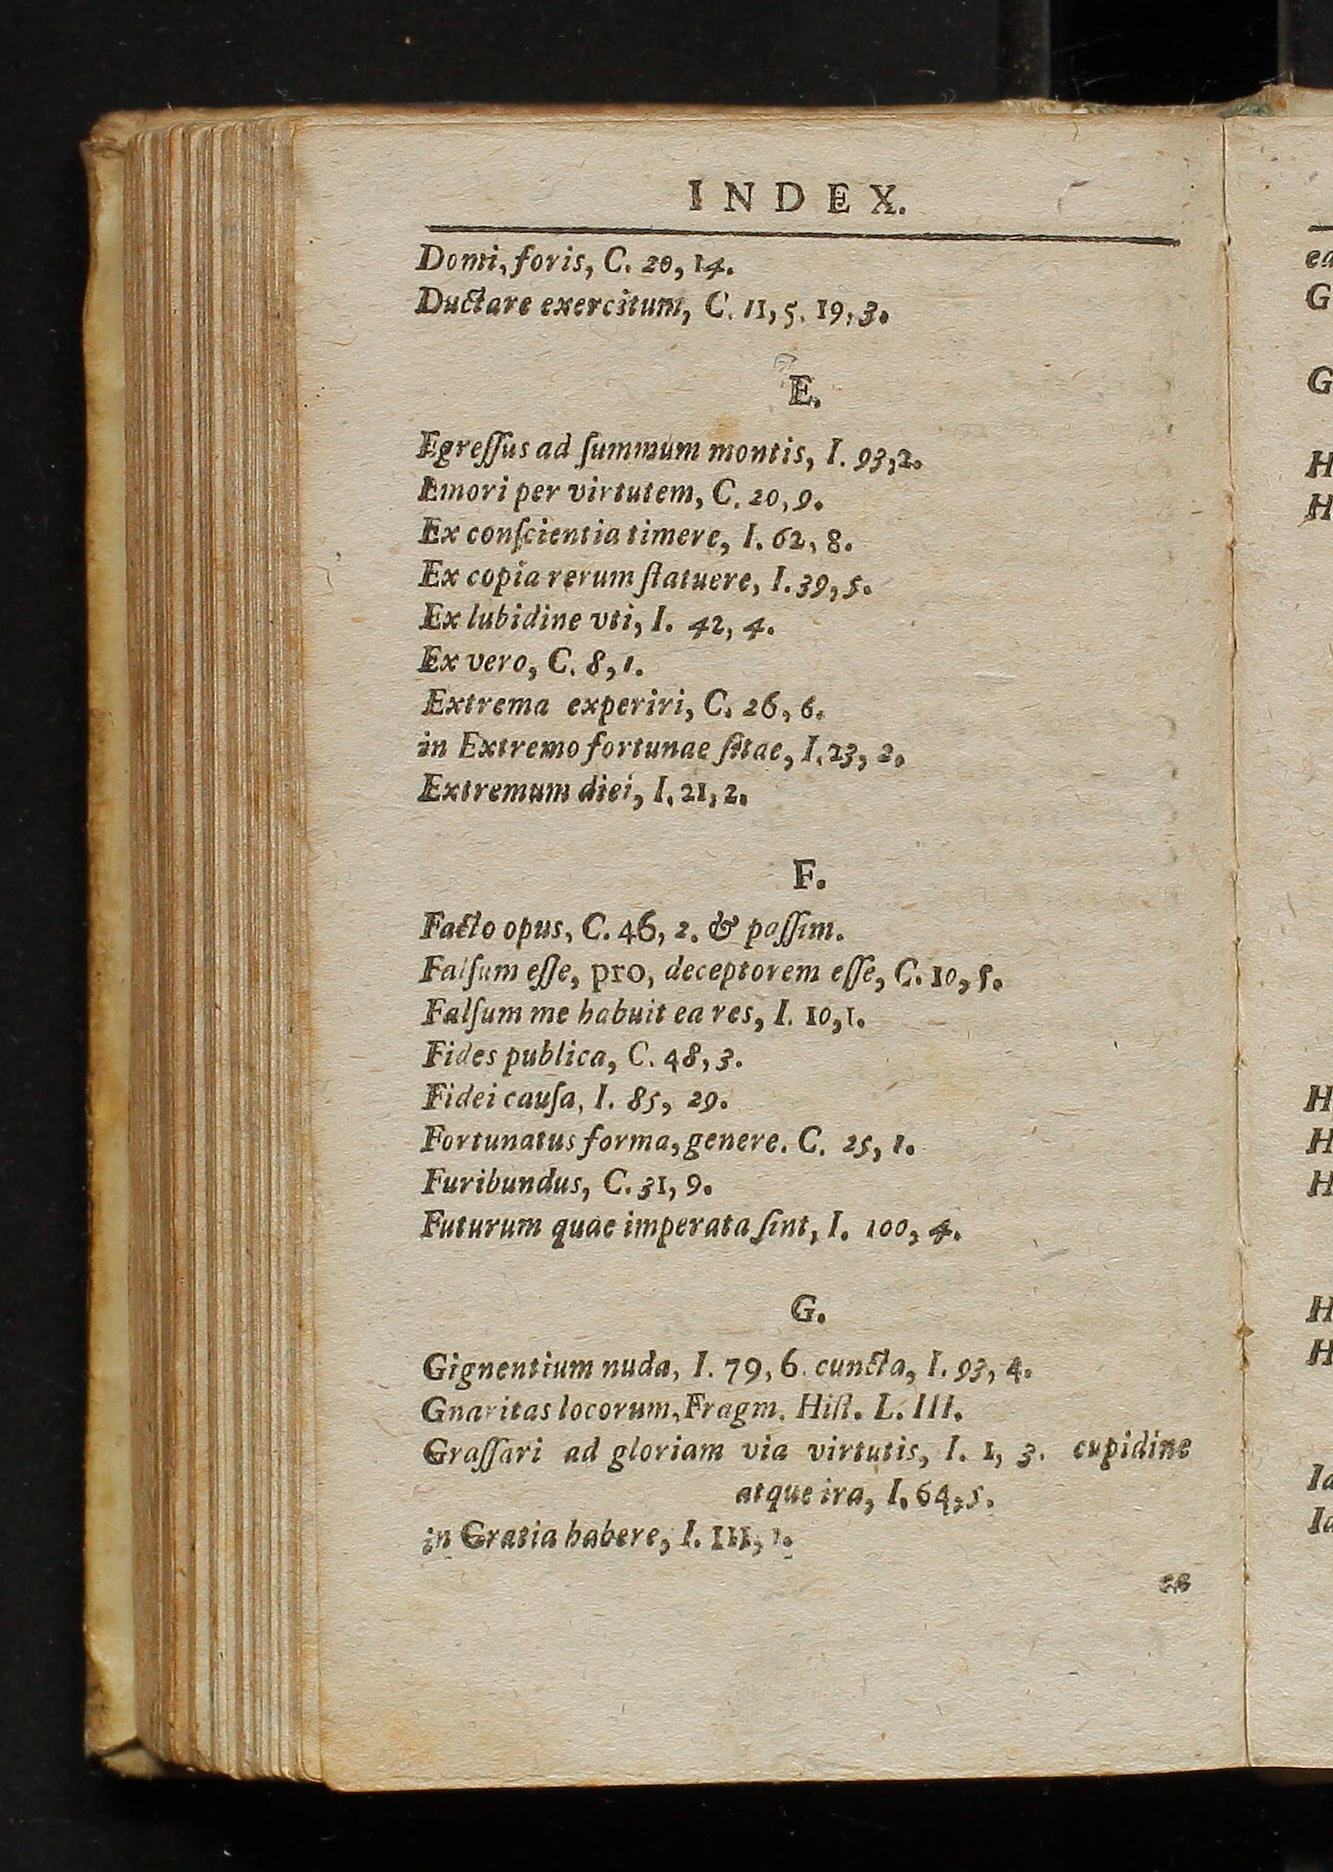 INDEX.
Domi, foris, C. 20, 14.
Ductare exercitum, C. 11, 5. 19, 3.
E.
Egreſſus ad ſummum montis, I. 93, 2.
Emori per virtutem, C. 20, 9.
Ex conſcientia timere, I. 62, 8.
Ex copia rerum ſtatuere, I. 39, 5.
Ex lubidine vti, I. 42, 4.
Ex vero, C. 8, 1.
Extrema experiri, C. 26, 6.
in Extremo fortunae ſitae, I. 23, 2.
Extremum diei, I. 21, 2.
F.
Facto opus, C. 46, 2. & paſſim.
Falſum eſſe, pro, deceptorem eſſe, C. 10, 5.
Falſum me habuit ea res, I. 10, 1.
Fides publica, C. 48, 3.
Fidei cauſa, I. 85, 29.
Fortunatus forma, genere. C. 25, 1.
Furibundus, C. 31, 9.
Futurum quae imperata ſint, I. 100, 4.
G.
Gignentium nuda, I. 79, 6. cuncta, I. 93, 4.
Gnaritas locorum, Fragm. Hiſt. L. III.
Graſſari ad gloriam via virtutis, I. 1, 3. cupidine
atque ira, I. 64, 5.
in Gratia habere, I. 111, 1.
ea
G
G
H
H
H
H
H
H
H
Ia
Ia